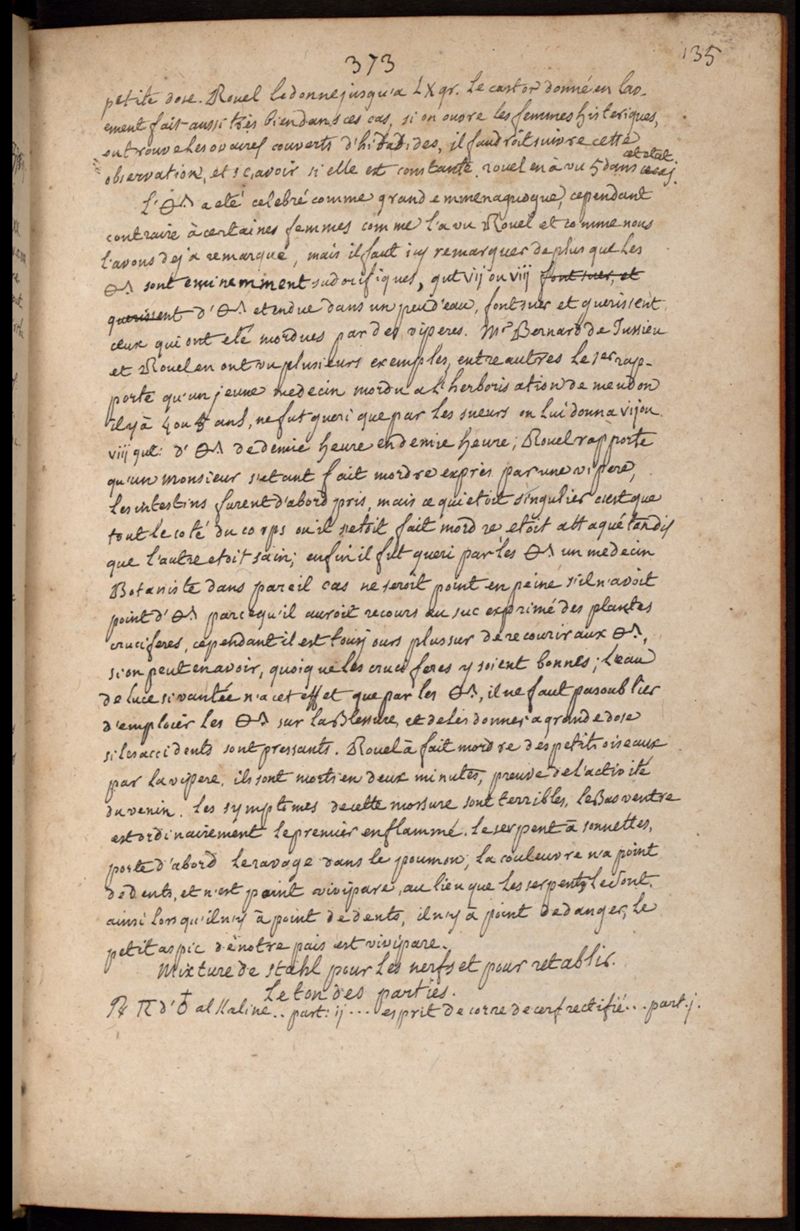 373
135
petite dose. Rouel le donne jusqu'a LX gr. Le castor donné en lav-
ement fait aussi très bien dans ces cas, si on ouvre les femmes histeriques,
on trouve les ovaires couverts d'hidatides, il faudroit suivre cette
observation, et sçavoir si elle est constante, rouel en à vu 5 dans cet etat
L' a eté celebré comme grand emmenagogue, cependant
contraire à certaines femmes comme l'a vu Rouel et comme nous
l'avons deja remarqué, mais il faut icy remarquer de plus que les
sont eminemment sudorifiques, gut vij ou viij font suer, et
guerissent d' etendue dans un peu d'eau, font suer et guerissent
ceux qui ont eté mordues par des viperes. Mr Bernard de Jussieu
et Rouel en ont vu plusieurs exemples, entre autres le 1er rap-
porte qu'un jeune medecin mordu a l'herborisation de meudon
il y à 4 ou 5 ans, ne fut gueri que par les sueurs on lui donna vij ou
viij gut: d' de demie heure en demie heure; Rouel rapporte
qu'un monsieur s'etant fait mordre exprès par une vipere,
les intestins furent d'abord pris, mais ce qui etoit singulier c'est que
tout le coté du corps ou il s'etoit fait mordre etoit attaqué tandis
que l'autre etoit sain; enfin il fut queri par les un medecin
Botaniste dans pareil cas ne seroit point en peine s'il n'avoit
point d' parce qu'il auroit recours au suc exprimé des plantes
cruciferes, cependant il est toujours plus sur de recourir aux
si on peut en avoir, quoique les cruciferes y soient bonnes; l'eau
de luce si vantée n'a cet effet que par les , il ne faut pas oublier
d'emploier les sur la Blessure, et de les donner a grande dose
si les accidents sont pressants. Rouel à fait mordre des petits oiseaux
par la vipere, ils sont morts en deux minutes, preuve de l'activité
du venin. les symptomes de cette morsure sont terribles, le Bas ventre
est ordinairement le premier enflammé. le serpent à sonnettes,
porte d'abord le ravage dans le poumon, la couleuvre n'a point
de dents, et n'est point vivipare, au lieu que les serpents le sont.
ainsi lorsqu'il n'y à point de dents, il n'y à point de danger, le
petit aspic de notre païs est vivipare.
Mixture de Stahl pour les nerfs et pour retablir
le ton des parties.
d' alKaline .. part: ij ... esprit de corne de cerf rectifié ... part. j.